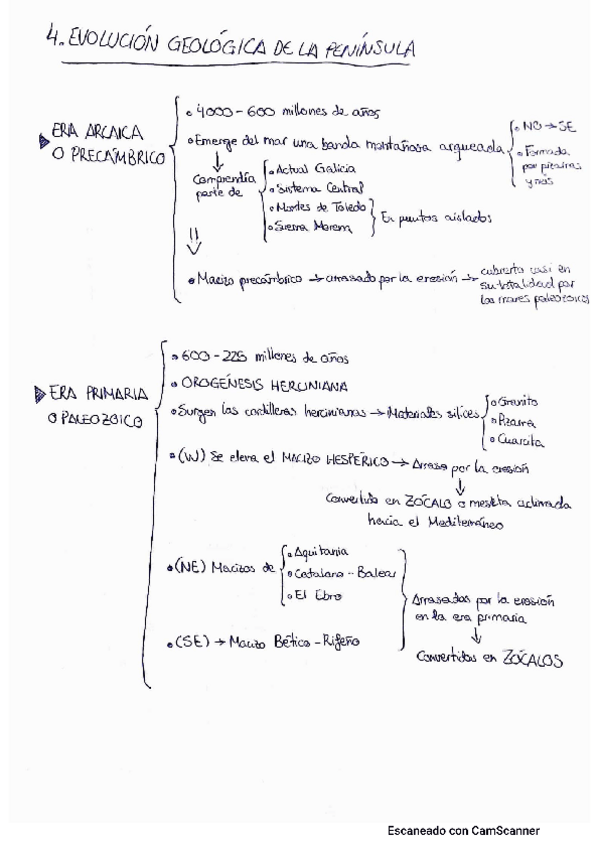 4. EVOLUCIÓN GEOLÓGICA DE LA PENÍNSULA
ERA ARCAICA
O PRECÁMBRICO
• 4000-600 millones de años
• Emerge del mar una banda montañosa arqueada
• NO → SE
• Formada
por pizarras
y nás
Comprendía
parte de
• Actual Galicia
• Sistema Central
• Montes de Toledo
• Sierra Morena
En puntos aislados
• Macizo precámbrico → arrasado por la erosión →
cubierto casi en
su totalidad por
los mares paleozoicos
ERA PRIMARIA
O PALEOZOICO
• 600-225 millones de años
• OROGÉNESIS HERCINIANA
• Surgen las cordilleras hercinianas → Materiales silíces
• Granito
• Pizarra
• Cuarcita
• (W) Se eleva el MACIZO HESPÉRICO → Arrasado por la erosión
Convertido en ZÓCALO o meseta inclinada
hacia el Mediterráneo
• (NE) Macizos de
• Aquitania
• Catalano-Balear
• El Ebro
• (SE) → Macizo Bético-Rifeño
Arrasados por la erosión
en la era primaria
Convertidos en ZÓCALOS
Escaneado con CamScanner